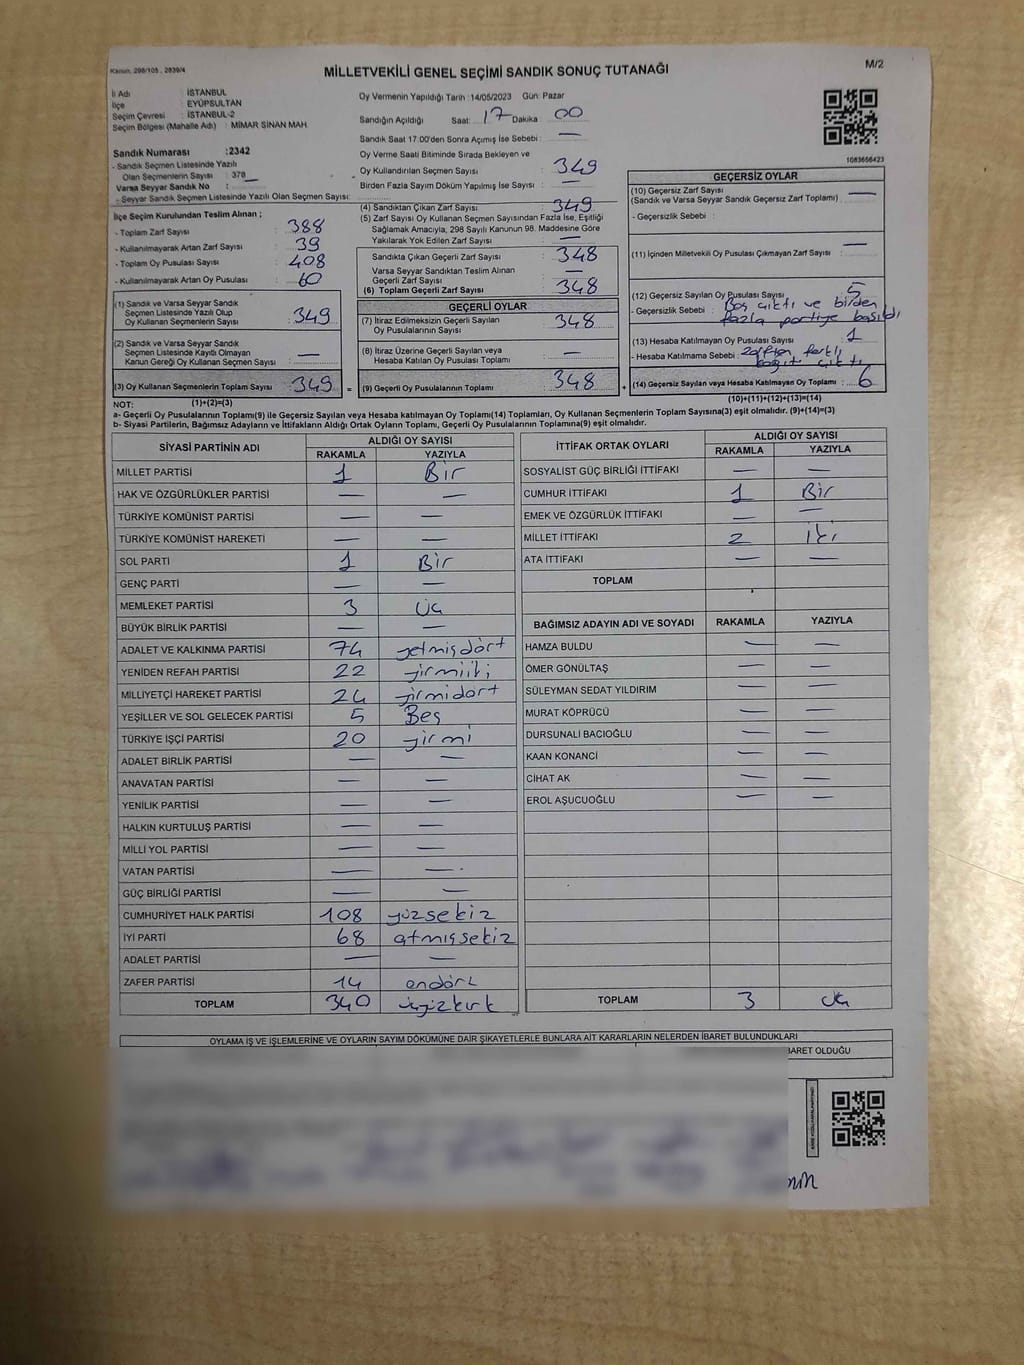 Kanun, 298/105 , 2839/4
MİLLETVEKİLİ GENEL SEÇİMİ SANDIK SONUÇ TUTANAĞI
M/2
İl Adı : İSTANBUL
İlçe : EYÜPSULTAN
Seçim Çevresi : İSTANBUL-2
Seçim Bölgesi (Mahalle Adı) : MİMAR SİNAN MAH.
Sandık Numarası :2342
- Sandık Seçmen Listesinde Yazılı
Olan Seçmenlerin Sayısı : 378
Varsa Seyyar Sandık No :
- Seyyar Sandık Seçmen Listesinde Yazılı Olan Seçmen Sayısı:
Oy Vermenin Yapıldığı Tarih :14/05/2023 Gün: Pazar
Sandığın Açıldığı Saat: 17 Dakika : 00
Sandık Saat 17:00'den Sonra Açımış İse Sebebi : —
Oy Verme Saati Bitiminde Sırada Bekleyen ve
Oy Kullandırılan Seçmen Sayısı : 349
Birden Fazla Sayım Döküm Yapılmış İse Sayısı : —
1083656423
İlçe Seçim Kurulundan Teslim Alınan ;
- Toplam Zarf Sayısı : 388
- Kullanılmayarak Artan Zarf Sayısı : 39
- Toplam Oy Pusulası Sayısı : 408
- Kullanılmayarak Artan Oy Pusulası : 60
(1) Sandık ve Varsa Seyyar Sandık
Seçmen Listesinde Yazılı Olup
Oy Kullanan Seçmenlerin Sayısı : 349
(2) Sandık ve Varsa Seyyar Sandık
Seçmen Listesinde Kayıtlı Olmayan
Kanun Gereği Oy Kullanan Seçmen Sayısı : —
(3) Oy Kullanan Seçmenlerin Toplam Sayısı : 349 =
(1)+(2)=(3)
(4) Sandıktan Çıkan Zarf Sayısı : 349
(5) Zarf Sayısı Oy Kullanan Seçmen Sayısından Fazla İse, Eşitliği
Sağlamak Amacıyla, 298 Sayılı Kanunun 98. Maddesine Göre
Yakılarak Yok Edilen Zarf Sayısı : —
Sandıkta Çıkan Geçerli Zarf Sayısı : 348
Varsa Seyyar Sandıktan Teslim Alınan
Geçerli Zarf Sayısı : —
(6) Toplam Geçerli Zarf Sayısı : 348
GEÇERLİ OYLAR
(7) İtiraz Edilmeksizin Geçerli Sayılan
Oy Pusulalarının Sayısı : 348
(8) İtiraz Üzerine Geçerli Sayılan veya
Hesaba Katılan Oy Pusulası Toplamı : —
(9) Geçerli Oy Pusulalarının Toplamı : 348 +
GEÇERSİZ OYLAR
(10) Geçersiz Zarf Sayısı : —
(Sandık ve Varsa Seyyar Sandık Geçersiz Zarf Toplamı)
- Geçersizlik Sebebi :
(11) İçinden Milletvekili Oy Pusulası Çıkmayan Zarf Sayısı : —
(12) Geçersiz Sayılan Oy Pusulası Sayısı : 5
- Geçersizlik Sebebi : Boş çıktı ve birden
fazla partiye basıldı
(13) Hesaba Katılmayan Oy Pusulası Sayısı : 1
- Hesaba Katılmama Sebebi : zarftan farklı
kağıt çıktı
(14) Geçersiz Sayılan veya Hesaba Katılmayan Oy Toplamı : 6
(10)+(11)+(12)+(13)=(14)
NOT:
a- Geçerli Oy Pusulalarının Toplamı(9) ile Geçersiz Sayılan veya Hesaba katılmayan Oy Toplamı(14) Toplamları, Oy Kullanan Seçmenlerin Toplam Sayısına(3) eşit olmalıdır. (9)+(14)=(3)
b- Siyasi Partilerin, Bağımsız Adayların ve İttifakların Aldığı Oyların Toplamı, Geçerli Oy Pusulalarının Toplamına(9) eşit olmalıdır.
SİYASİ PARTİNİN ADI ALDIĞI OY SAYISI
RAKAMLA YAZIYLA
MİLLET PARTİSİ 1 Bir
HAK VE ÖZGÜRLÜKLER PARTİSİ — —
TÜRKİYE KOMÜNİST PARTİSİ — —
TÜRKİYE KOMÜNİST HAREKETİ — —
SOL PARTİ 1 Bir
GENÇ PARTİ — —
MEMLEKET PARTİSİ 3 Üç
BÜYÜK BİRLİK PARTİSİ — —
ADALET VE KALKINMA PARTİSİ 74 yetmişdört
YENİDEN REFAH PARTİSİ 22 yirmiiki
MİLLİYETÇİ HAREKET PARTİSİ 24 yirmidört
YEŞİLLER VE SOL GELECEK PARTİSİ 5 Beş
TÜRKİYE İŞÇİ PARTİSİ 20 yirmi
ADALET BİRLİK PARTİSİ — —
ANAVATAN PARTİSİ — —
YENİLİK PARTİSİ — —
HALKIN KURTULUŞ PARTİSİ — —
MİLLİ YOL PARTİSİ — —
VATAN PARTİSİ — —
GÜÇ BİRLİĞİ PARTİSİ — —
CUMHURİYET HALK PARTİSİ 108 yüzsekiz
İYİ PARTİ 68 atmışsekiz
ADALET PARTİSİ — —
ZAFER PARTİSİ 14 ondört
TOPLAM 340 üçyüzkırk
İTTİFAK ORTAK OYLARI ALDIĞI OY SAYISI
RAKAMLA YAZIYLA
SOSYALİST GÜÇ BİRLİĞİ İTTİFAKI — —
CUMHUR İTTİFAKI 1 Bir
EMEK VE ÖZGÜRLÜK İTTİFAKI — —
MİLLET İTTİFAKI 2 İki
ATA İTTİFAKI — —
TOPLAM
BAĞIMSIZ ADAYIN ADI VE SOYADI RAKAMLA YAZIYLA
HAMZA BULDU — —
ÖMER GÖNÜLTAŞ — —
SÜLEYMAN SEDAT YILDIRIM — —
MURAT KÖPRÜCÜ — —
DURSUNALİ BACIOĞLU — —
KAAN KONANCİ — —
CİHAT AK — —
EROL AŞUCUOĞLU — —
TOPLAM 3 üç
OYLAMA İŞ VE İŞLEMLERİNE VE OYLARIN SAYIM DÖKÜMÜNE DAİR ŞİKAYETLERLE BUNLARA AİT KARARLARIN NELERDEN İBARET BULUNDUKLARI
BARET OLDUĞU